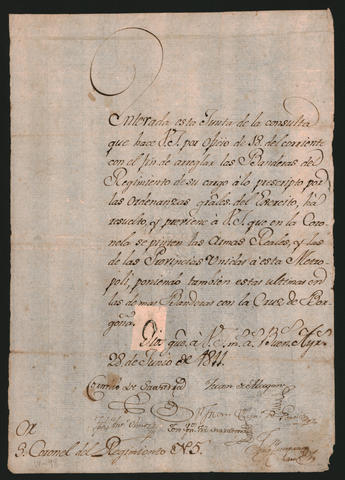 Enterada esta Junta de la consulta
que hace V.S. por oficio de 18. del corriente
con el fin de arreglar las Banderas del
Regimiento de su cargo á lo prescripto por
las Ordenanzas grales. del Exercito, há
resuelto, y previene à V.S. que en la Coro-
nela se pinten las Armas Reales, y las
de las Provincias Unidas à esta Metro-
poli, poniendo tambien estas ultimas en
las demas Banderas con la Cruz de Bor-
goña.
Dios gue. à V.S. m.s a.s Buen.s Ayr.s
28 de Junio de 1811.
Cornelio de Saavedra
Or
S. Coronel del Regimiento N.5.